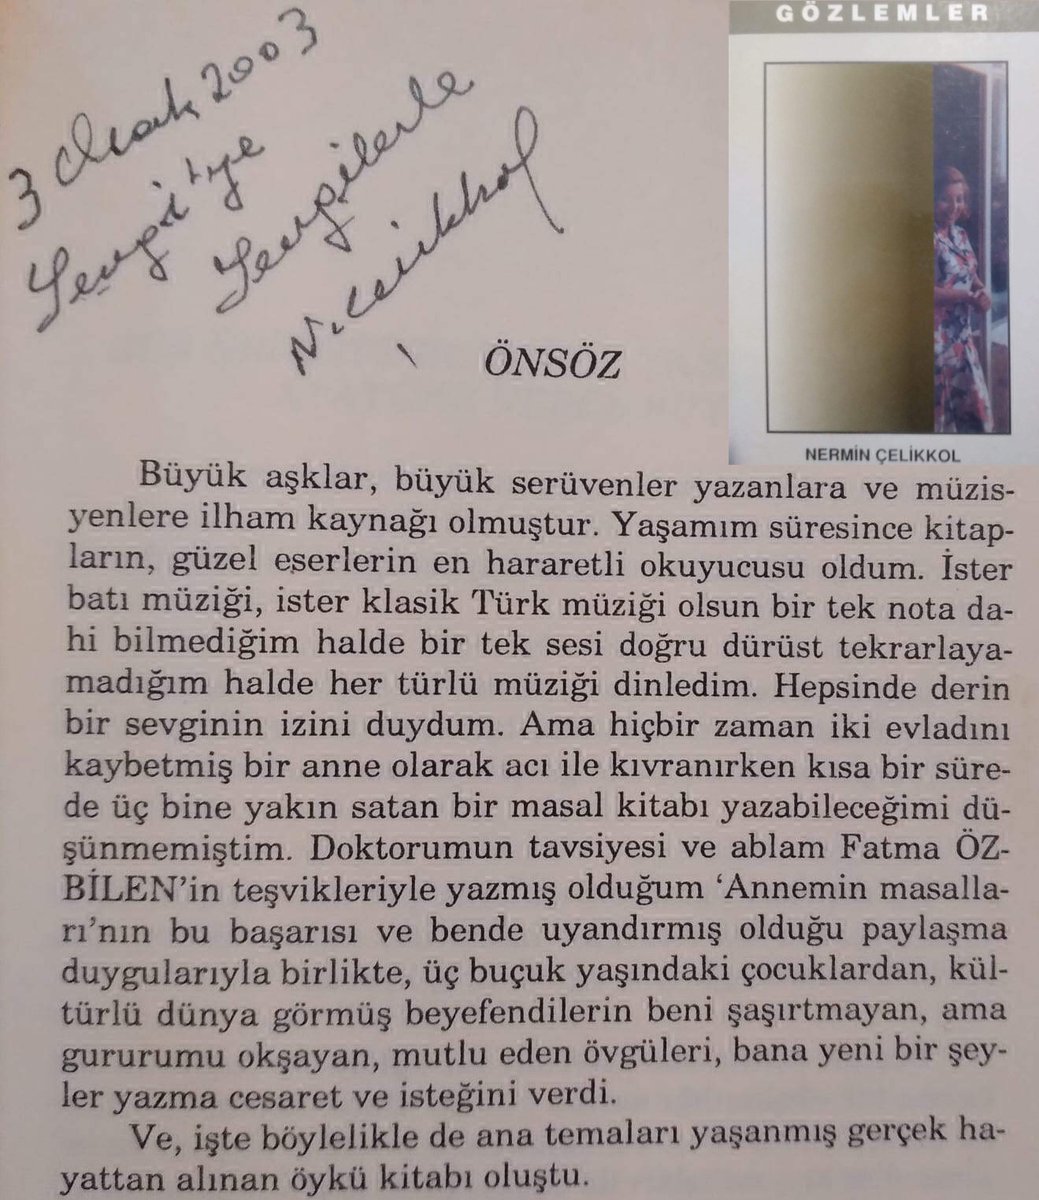 3 Ocak 2003
Sevgi'ye
Sevgilerle
N. Çelikkol
GÖZLEMLER
NERMİN ÇELİKKOL
ÖNSÖZ
Büyük aşklar, büyük serüvenler yazanlara ve müzis-
yenlere ilham kaynağı olmuştur. Yaşamım süresince kitap-
ların, güzel eserlerin en hararetli okuyucusu oldum. İster
batı müziği, ister klasik Türk müziği olsun bir tek nota da-
hi bilmediğim halde bir tek sesi doğru dürüst tekrarlaya-
madığım halde her türlü müziği dinledim. Hepsinde derin
bir sevginin izini duydum. Ama hiçbir zaman iki evladını
kaybetmiş bir anne olarak acı ile kıvranırken kısa bir süre-
de üç bine yakın satan bir masal kitabı yazabileceğimi dü-
şünmemiştim. Doktorumun tavsiyesi ve ablam Fatma ÖZ-
BİLEN'in teşvikleriyle yazmış olduğum 'Annemin masalla-
rı'nın bu başarısı ve bende uyandırmış olduğu paylaşma
duygularıyla birlikte, üç buçuk yaşındaki çocuklardan, kül-
türlü dünya görmüş beyefendilerin beni şaşırtmayan, ama
gururumu okşayan, mutlu eden övgüleri, bana yeni bir şey-
ler yazma cesaret ve isteğini verdi.
Ve, işte böylelikle de ana temaları yaşanmış gerçek ha-
yattan alınan öykü kitabı oluştu.